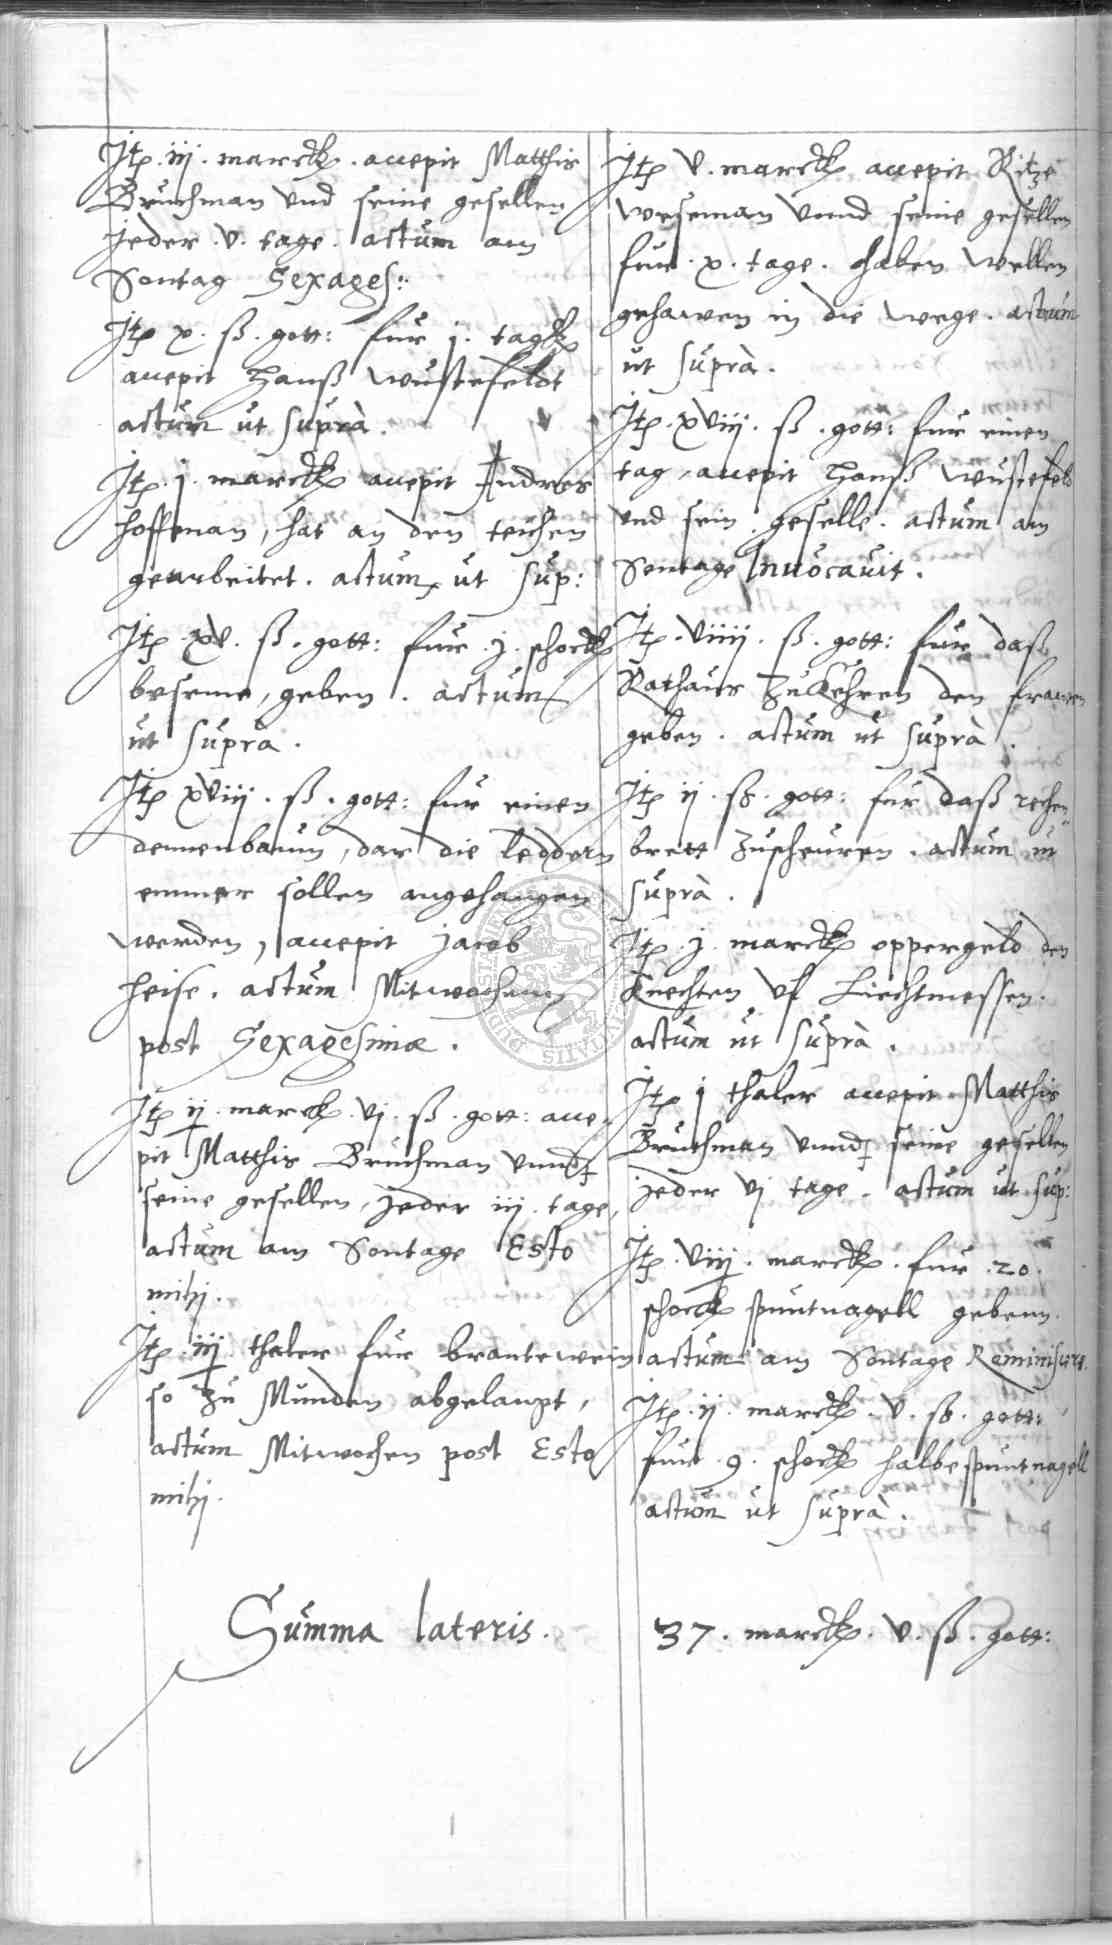 Jtem .iij. marck. accepit Matthis
Bruchman vnd seine gesellen
jeder .v. tage. actum am
Sontag Sexages:
Jtem x. ß. gott: fur j. tagk
accepit Hanß Wustefeldt
actum ut suprà.
Jtem .j. marck accepit Andres
Hoffman, hat an den teichen
gearbeitet. actum ut sup:
Jtem .xv. ß. gott: fur .j. schock
beseme, geben. actum
ut suprà.
Jtem xviij. ß. gott: fur einen
dennenbaum, dar die leddern
emmer sollen angehangen
werden, accepit Jacob
Heise. actum Mitwochenn
post Sexagesimæ.
Jtem ij. marck. vj. ß. gott: acce-
pit Matthis Bruchman vnnd
seine gesellen, jeder iij. tage,
actum am Sontage Esto
mihj.
Jtem .iij. thaler fur brantewein
so zu Munden abgelanpt,
actum Mitwochen post Esto
mihj.
Jtem v. marck accepit Ritze
Weseman vnnd seine gesellen
fur .x. tage. haben wellen
gehawen in die wege. actum
ut suprà.
Jtem .xviij. ß. gott: fur einen
tag, accepit Hanß Wustefeld
vnd sein geselle. actum am
Sontage Inuocauit.
Jtem .viiij. ß. gott: fur daß
Rathaus zukehren den frawen
geben. actum ut suprà.
Jtem ij. ß. gott: fur daß rechen-
brett zuscheuren. actum ut
suprà.
Jtem .j. marck oppergeld den
Knechten vf Liechtmessen.
actum ut suprà.
Jtem j thaler accepit Matthis
Bruchman vnnd seine gesellen
jeder vj tage. actum ut sup:
Jtem .viij. marck. fur .20.
schock spuntnagell gebenn.
actum am Sontage Reminiscere.
Jtem .ij. marck. v. ß. gott:
fur .9. schock halbespuntnagell
actum ut suprà.
Summa lateris. 37. marck. v. ß. gott: